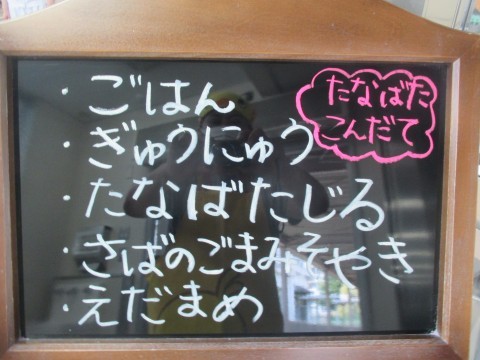 たなばた
こんだて
・ごはん
・ぎゅうにゅう
・たなばたじる
・さばのごまみそやき
・えだまめ